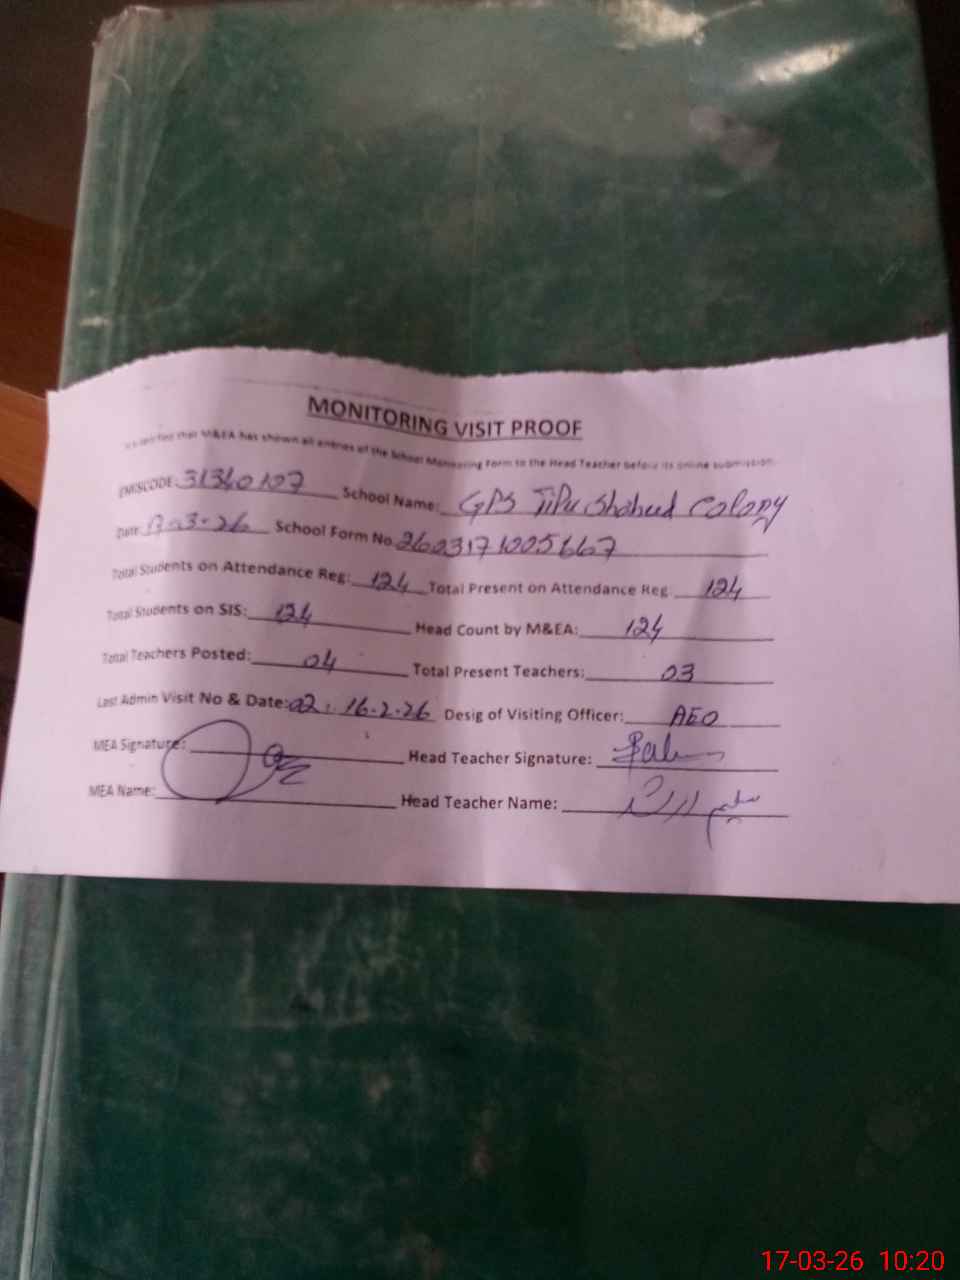 MONITORING VISIT PROOF
It is certified that M&EA has shown all entries of the School Monitoring Form to the Head Teacher before its online submission.
EMISCODE: 31340107 School Name: GPS Tipu Shaheed Colony
Date: 17-3-26 School Form No. 2603171005667
Total Students on Attendance Reg: 124 Total Present on Attendance Reg 124
Total Students on SIS: 124 Head Count by M&EA: 124
Total Teachers Posted: 04 Total Present Teachers: 03
Last Admin Visit No & Date: 02, 16-2-26 Desig of Visiting Officer: AEO
MEA Signature: Head Teacher Signature:
MEA Name: Head Teacher Name: سلیم
17-03-26 10:20